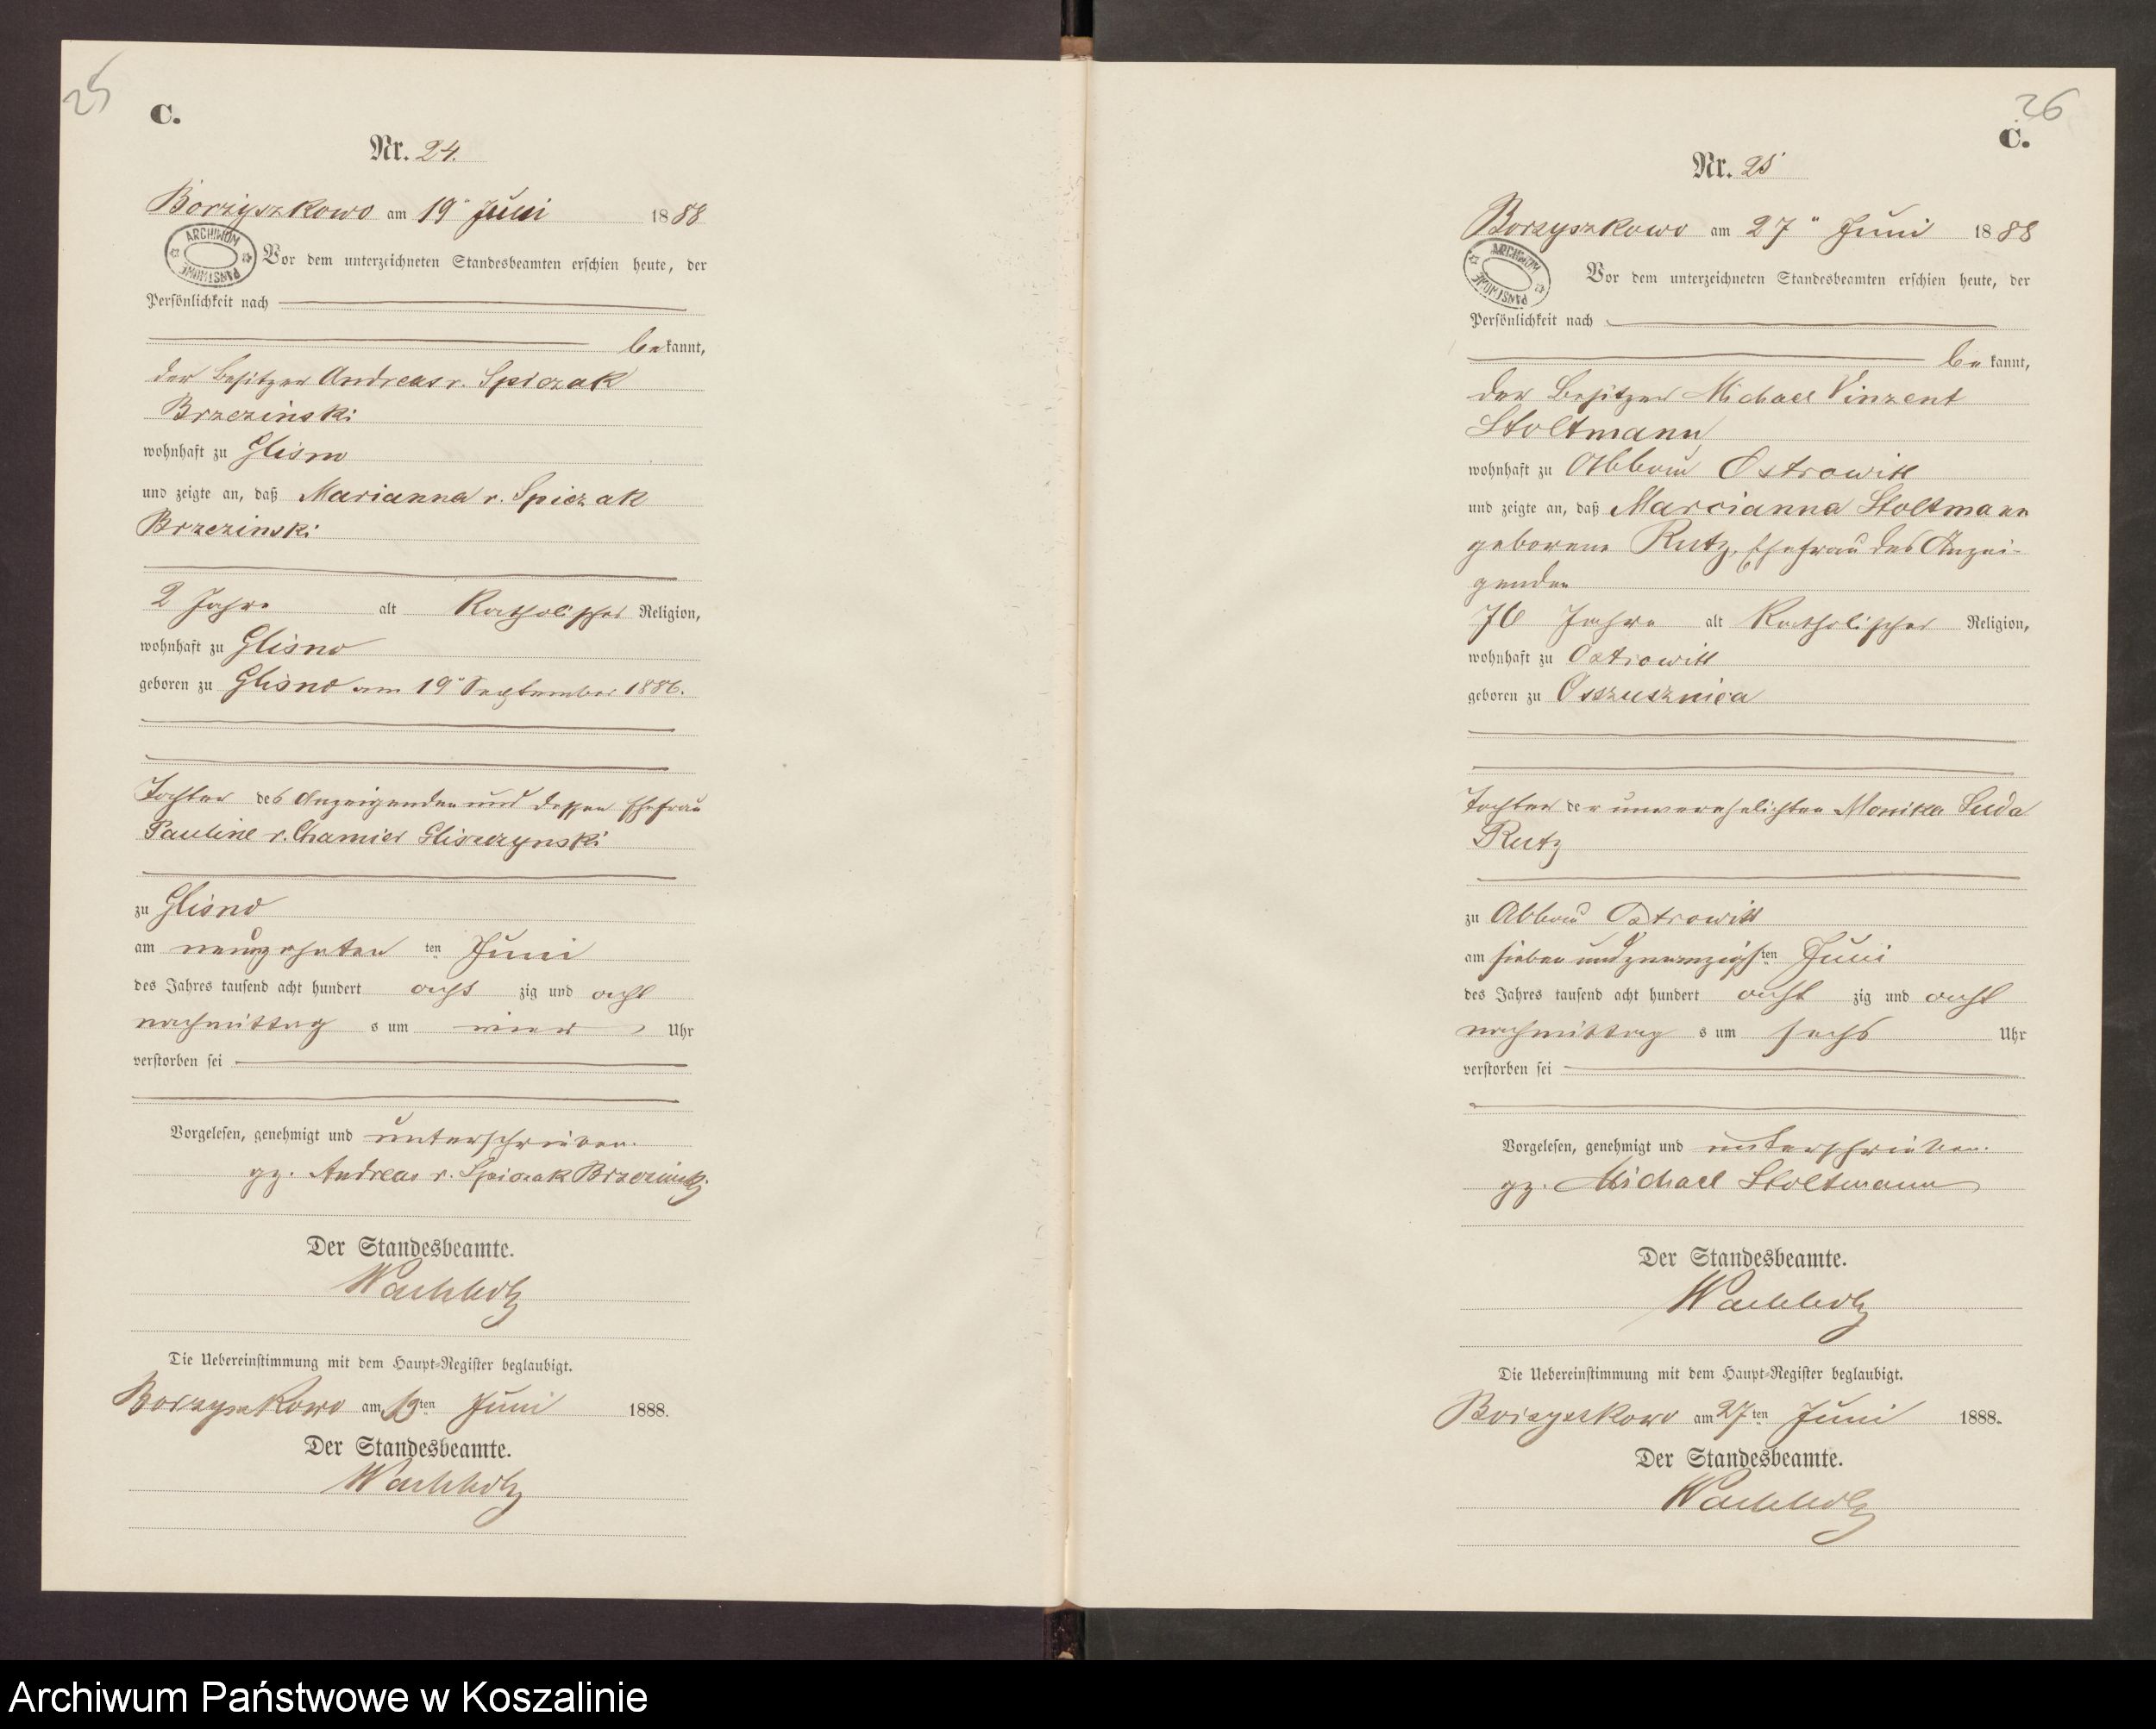 25
C.
Nr. 24.
Borzyszkowo am 19" Juni 1888
ARCHIWUM PAŃSTWOWE
Vor dem unterzeichneten Standesbeamten erschien heute, der
Persönlichkeit nach
bekannt,
der Besitzer Andreas v. Spiczak
Brzezinski
wohnhaft zu Glisno
und zeigte an, daß Marianna v. Spiczak
Brzezinski
2 Jahre alt Katholischer Religion,
wohnhaft zu Glisno
geboren zu Glisno am 19" September 1886.
Tochter des Anzeigenden und dessen Ehefrau
Pauline v. Chamier Gliszczynski
zu Glisno
am neunzehnten ten Juni
des Jahres tausend acht hundert acht zig und acht
nachmittag s um vier Uhr
verstorben sei
Vorgelesen, genehmigt und unterschrieben.
gz. Andreas v. Spiczak Brzezinski
Der Standesbeamte.
Wachholz
Die Uebereinstimmung mit dem Haupt-Register beglaubigt.
Borzyszkowo am 19ten Juni 1888.
Der Standesbeamte.
Wachholz
26
C.
Nr. 25
Borzyszkowo am 27" Juni 1888
ARCHIWUM PAŃSTWOWE
Vor dem unterzeichneten Standesbeamten erschien heute, der
Persönlichkeit nach
bekannt,
der Besitzer Michael Vinzent
Stoltmann
wohnhaft zu Abbau Ostrowitt
und zeigte an, daß Marcianna Stoltmann
geborene Rutz, Ehefrau des Anzei-
genden
Jahre alt Katholischer Religion,
wohnhaft zu Ostrowitt
geboren zu Osszusznica
Tochter der unverehelichten Monika Luda
Rutz
zu Abbau Ostrowitt
am sieben und zwanzigsten Juni
des Jahres tausend acht hundert acht zig und acht
nachmittag s um sechs Uhr
verstorben sei
Vorgelesen, genehmigt und unterschrieben.
gz. Michael Stoltmann
Der Standesbeamte.
Wachholz
Die Uebereinstimmung mit dem Haupt-Register beglaubigt.
Borzyszkowo am 27ten Juni 1888.
Der Standesbeamte.
Wachholz
Archiwum Państwowe w Koszalinie